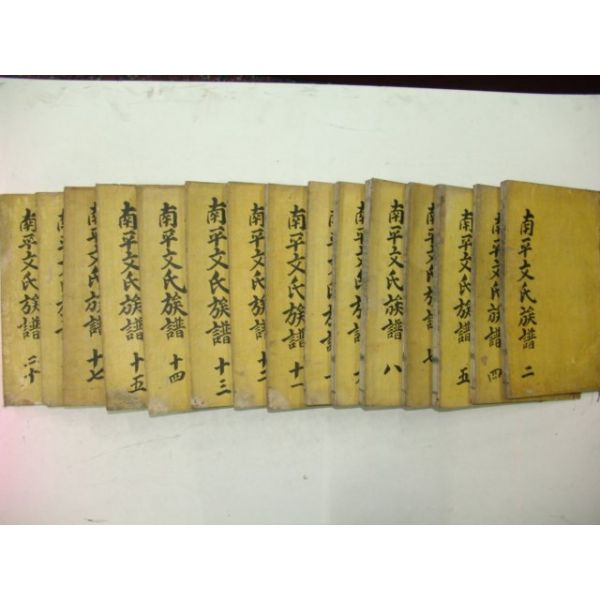 南平文氏族譜 二
南平文氏族譜 四
南平文氏族譜 五
南平文氏族譜 七
南平文氏族譜 八
南平文氏族譜
南平文氏族
南平文氏族譜 十一
南平文氏族譜 十二
南平文氏族譜 十三
南平文氏族譜 十四
南平文氏族譜 十五
南平文氏族譜 十七
南平文氏族
南平文氏族譜 二十